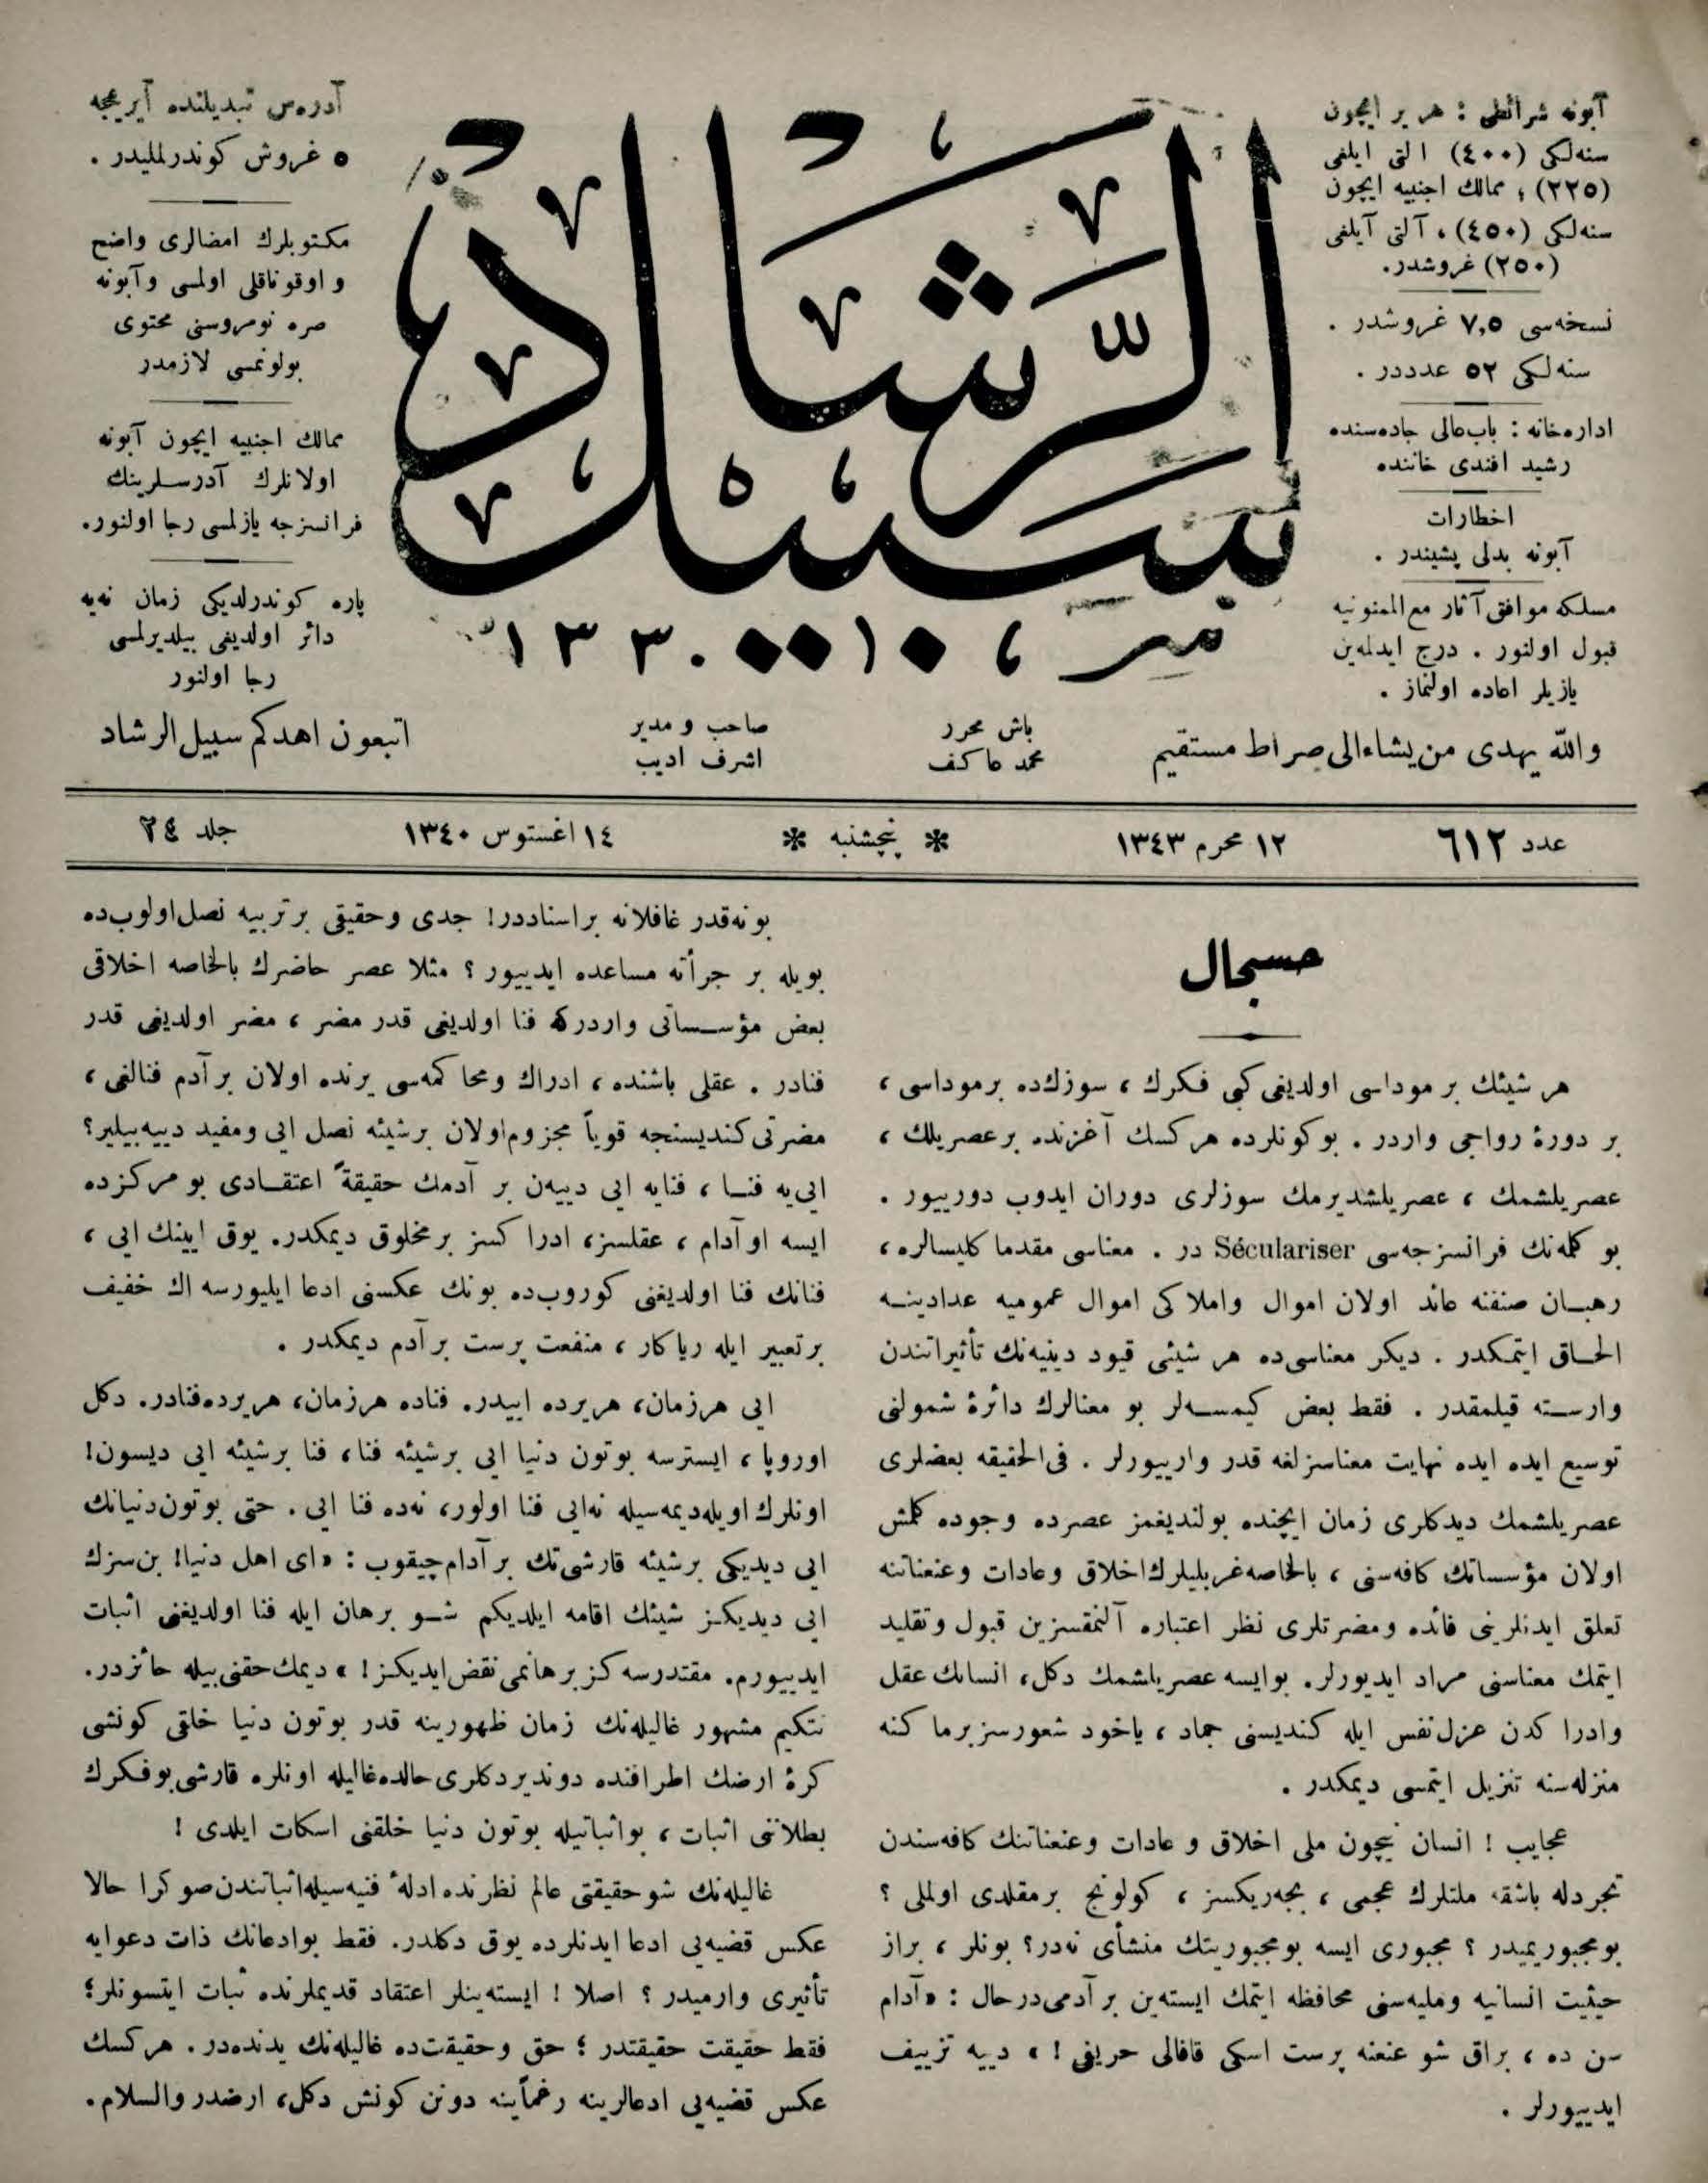 آبونه شرائطی : هر یر ایچون
سنه‌لکی (٤٠٠) التی ایلغی
(٢٢٥) ، ممالك اجنبیه ایچون
سنه‌لکی (٤٥٠) ، آلتی آیلغی
(٢٥٠) غروشدر.
نسخه‌سی ٧,٥ غروشدر .
سنه‌لکی ٥٢ عدددر .
اداره‌خانه : باب‌عالی جاده‌سنده
رشید افندی خاننده
اخطارات
آبونه بدلی پشیندر .
مسلکه موافق آثار مع‌الممنونیه
قبول اولنور . درج ایدلمه‌ین
یازیلر اعاده اولنماز .
سبیل الرشاد
آدره‌س تبدیلنده آیریجه
٥ غروش کوندرلملیدر .
مکتوبلرك امضالری واضح
و اوقوناقلی اولمسی وآبونه
صره نومروسنی محتوی
بولونمسی لازمدر
ممالك اجنبیه ایچون آبونه
اولانلرك آدرسلرینك
فرانسزجه یازلمسی رجا اولنور.
پاره کوندرلدیکی زمان نه‌یه
دائر اولدیغی بیلدیرلمسی
رجا اولنور
والله یهدی من یشاء الی صراط مستقیم
باش محرر
محمد عاکف
صاحب و مدیر
اشرف ادیب
اتبعون اهدکم سبیل الرشاد
عدد ٦١٢
١٢ محرم ١٣٤٣
* پنچشنبه *
١٤ اغستوس ١٣٤٠
جلد ٢٤
حسبحال
هر شیئك بر موداسی اولدیغی کبی فکرك ، سوزك‌ده برموداسی ،
بر دورهٔ رواجی واردر . بوکونلرده هرکسك آغزنده برعصریلك ،
عصریلشمك ، عصریلشدیرمك سوزلری دوران ایدوب دورییور .
بو کلمه‌نك فرانسزجه‌سی Séculariser در . معناسی مقدما کلیسالره ،
رهبان صنفنه عائد اولان اموال واملاکی اموال عمومیه عدادینه
الحاق ایتمکدر . دیکر معناسی‌ده هر شیئی قیود دینیه‌نك تأثیراتندن
وارسته قیلمقدر . فقط بعض کیمسه‌لر بو معنالرك دائرهٔ شمولنی
توسیع ایده ایده نهایت معناسزلغه قدر وارییورلر . فی‌الحقیقه بعضلری
عصریلشمك دیدکلری زمان ایچنده بولندیغمز عصرده وجوده کلمش
اولان مؤسساتك کافه‌سنی ، بالخاصه غربلیلرك اخلاق وعادات وعنعناتنه
تعلق ایدنلرینی فائده ومضرتلری نظر اعتباره آلنمقسزین قبول وتقلید
ایتمك معناسنی مراد ایدیورلر. بوایسه عصریلشمك دکل، انسانك عقل
وادراکدن عزل نفس ایله کندیسنی جماد ، یاخود شعورسز برماکنه
منزله‌سنه تنزیل ایتمسی دیمکدر .
عجایب ! انسان نیچون ملی اخلاق و عادات وعنعناتنك کافه‌سندن
تجردله باشقه ملتلرك عجمی ، بجه‌ریکسز ، کولونج برمقلدی اولملی ؟
بومجبوریمیدر ؟ مجبوری ایسه بومجبوریتك منشأی نه‌در؟ بونلر ، براز
حیثیت انسانیه وملیه‌سنی محافظه ایتمك ایسته‌ین بر آدمی درحال : «آدام
سن ده ، براق شو عنعنه پرست اسکی قافالی حریفی ! » دییه تزییف
ایدییورلر .
بونه‌قدر غافلانه براسناددر! جدی وحقیقی برتربیه نصل اولوب‌ده
بویله بر جرأته مساعده ایدییور ؟ مثلا عصر حاضرك بالخاصه اخلاقی
بعض مؤسساتی واردرکه فنا اولدیغی قدر مضر ، مضر اولدیغی قدر
فنادر . عقلی باشنده ، ادراك ومحاکمه‌سی یرنده اولان برآدم فنالغی ،
مضرتی کندیسنجه قویاً مجزوم اولان برشیئه نصل ایی ومفید دییه‌بیلیر؟
ایی‌یه فنا ، فنایه ایی دییه‌ن بر آدمك حقیقةً اعتقادی بو مرکزده
ایسه او آدام ، عقلسز، ادراکسز برمخلوق دیمکدر. یوق ایینك ایی ،
فنانك فنا اولدیغنی کوروب‌ده بونك عکسنی ادعا ایلیورسه اك خفیف
برتعبیر ایله ریاکار ، منفعت پرست برآدم دیمکدر .
ایی هرزمان، هریرده اییدر. فناده هرزمان، هریرده‌فنادر. دکل
اوروپا ، ایسترسه بوتون دنیا ایی برشیئه فنا، فنا برشیئه ایی دیسون!
اونلرك اویله‌دیمه‌سیله نه‌ایی فنا اولور، نه‌ده فنا ایی . حتی بوتون‌دنیانك
ایی دیدیکی برشیئه قارشی‌تك برآدام‌چیقوب : «ای اهل دنیا! بن‌سزك
ایی دیدیکز شیئك اقامه ایلدیکم شو برهان ایله فنا اولدیغنی اثبات
ایدییورم. مقتدرسه‌کز برهانمی نقض‌ایدیکز! » دیمك‌حقنی‌بیله حائزدر.
نتکیم مشهور غالیله‌نك زمان ظهورینه قدر بوتون دنیا خلقی کونشی
کرهٔ ارضك اطرافنده دوندیردکلری حالده‌غالیله اونلره قارشی‌بوفکرك
بطلاننی اثبات ، بواثباتیله بوتون دنیا خلقنی اسکات ایلدی !
غالیله‌نك شوحقیقتی عالم نظرنده ادلهٔ فنیه‌سیله‌اثباتندن‌صوکرا حالا
عکس قضیه‌یی ادعا ایدنلرده یوق دکلدر. فقط بوادعانك ذات دعوایه
تأثیری وارمیدر ؟ اصلا ! ایسته‌ینلر اعتقاد قدیملرنده ثبات ایتسونلر؛
فقط حقیقت حقیقتدر ؛ حق وحقیقت‌ده غالیله‌نك یدنده‌در . هرکسك
عکس قضیه‌یی ادعالرینه رغماً‌ینه دونن کونش دکل، ارضدر والسلام.